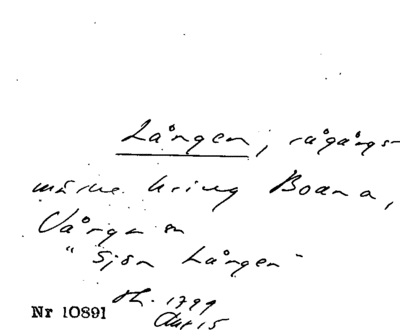 Lången, rågångs-
märke kring Boana,
Vången
"Sjön Lången"
Nr 10891
1799
Akt 15